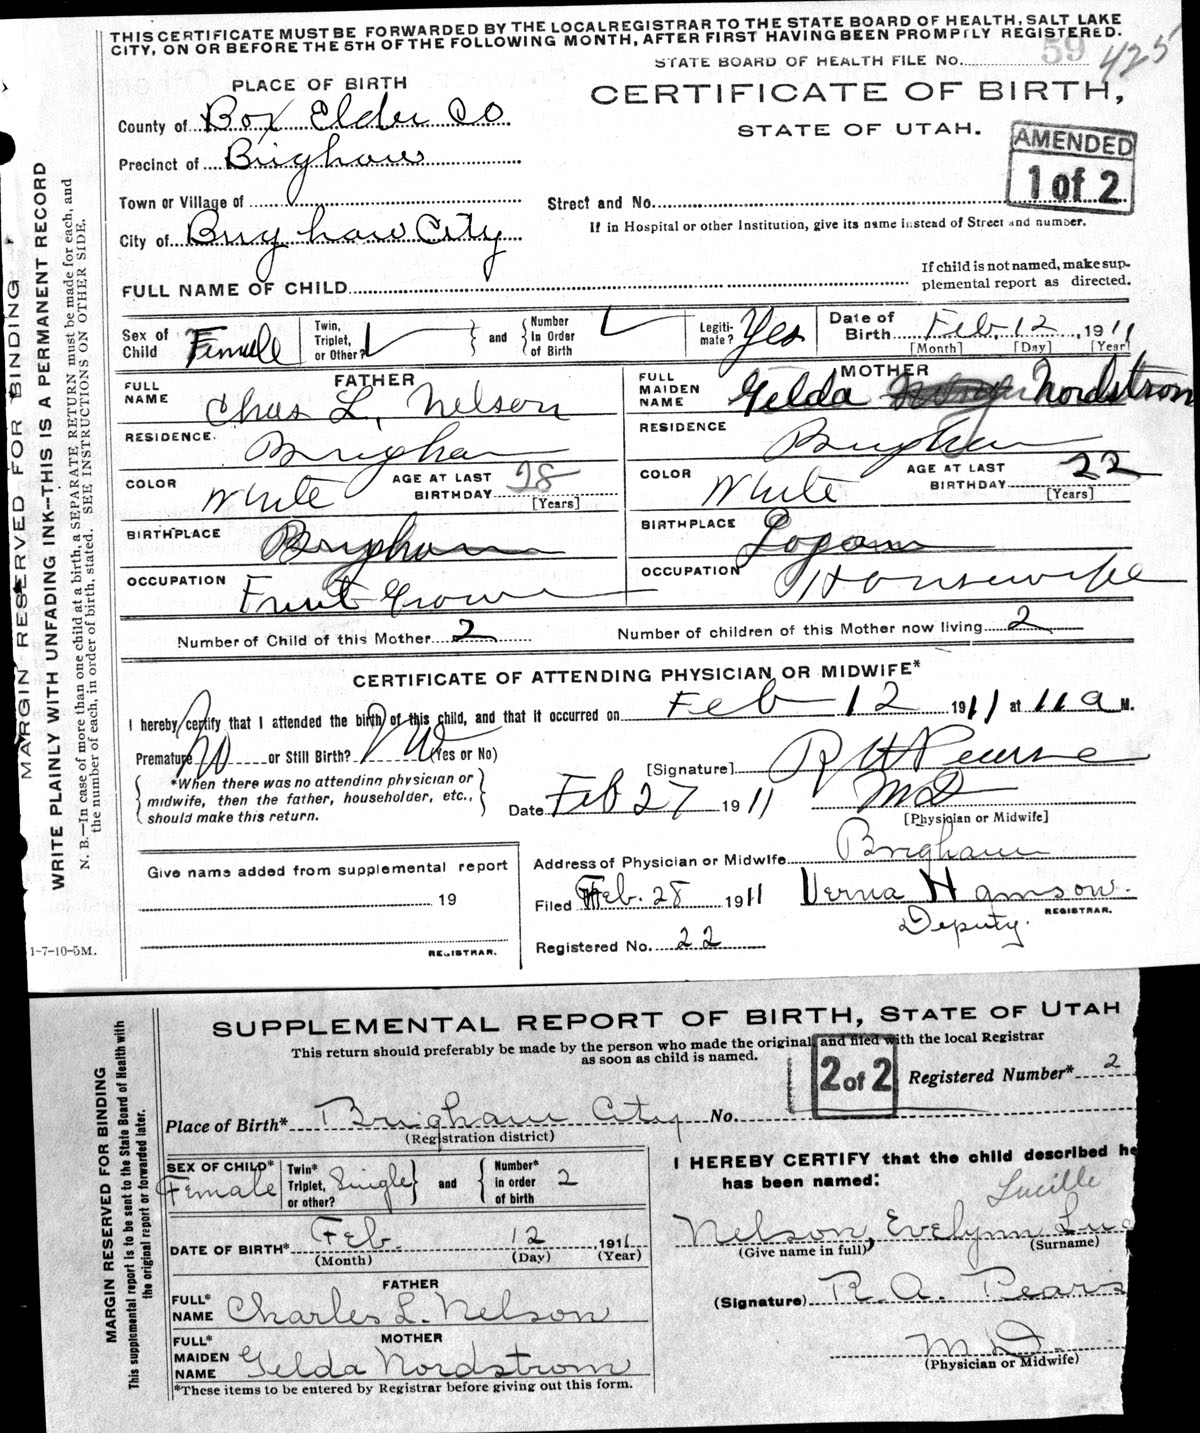 THIS CERTIFICATE MUST BE FORWARDED BY THE LOCAL REGISTRAR TO THE STATE BOARD OF HEALTH, SALT LAKE
CITY, ON OR BEFORE THE 5TH OF THE FOLLOWING MONTH, AFTER FIRST HAVING BEEN PROMPTLY REGISTERED.
STATE BOARD OF HEALTH FILE No. 59 425
PLACE OF BIRTH
CERTIFICATE OF BIRTH,
STATE OF UTAH.
AMENDED
1 of 2
County of Box Elder Co
Precinct of Brigham
Town or Village of
Street and No.
City of Brigham City
If in Hospital or other Institution, give its name instead of Street and number.
FULL NAME OF CHILD
If child is not named, make sup-
plemental report as directed.
Sex of Child Female
Twin, Triplet, or Other?
and
Number In Order of Birth
Legiti-mate? Yes
Date of Birth Feb 12, 1911
[Month] [Day] [Year]
FATHER
FULL NAME Chas L, Nelson
RESIDENCE. Brigham
COLOR White
AGE AT LAST BIRTHDAY 28
[Years]
BIRTHPLACE Brigham
OCCUPATION Fruit Grower
MOTHER
FULL MAIDEN NAME Gelda Nordstrom
RESIDENCE Brigham
COLOR White
AGE AT LAST BIRTHDAY 22
[Years]
BIRTHPLACE Logan
OCCUPATION Housewife
Number of Child of this Mother 2
Number of children of this Mother now living 2
CERTIFICATE OF ATTENDING PHYSICIAN OR MIDWIFE*
I hereby certify that I attended the birth of this child, and that it occurred on Feb 12 1911 at 11 a M.
Premature No or Still Birth? No (Yes or No)
*When there was no attending physician or
midwife, then the father, householder, etc.,
should make this return.
[Signature]
Date Feb 27 1911
MD
[Physician or Midwife]
Address of Physician or Midwife Brigham
Give name added from supplemental report
19
REGISTRAR.
Filed Feb. 28 1911 Verna Hanson
REGISTRAR.
Deputy.
Registered No. 22
1-7-10-5M.
MARGIN RESERVED FOR BINDING
WRITE PLAINLY WITH UNFADING INK—THIS IS A PERMANENT RECORD
N. B.—In case of more than one child at a birth, a SEPARATE RETURN must be made for each, and
the number of each, in order of birth, stated. SEE INSTRUCTIONS ON OTHER SIDE.
SUPPLEMENTAL REPORT OF BIRTH, STATE OF UTAH
This return should preferably be made by the person who made the original, and filed with the local Registrar
as soon as child is named.
2 of 2
Registered Number* 2
Place of Birth* Brigham City No.
(Registration district)
SEX OF CHILD* Female
Twin* Triplet, or other? Single
and
Number* in order of birth 2
DATE OF BIRTH* Feb. 12 1911
(Month) (Day) (Year)
FATHER
FULL* NAME Charles L. Nelson
MOTHER
FULL* MAIDEN NAME Gelda Nordstrom
*These items to be entered by Registrar before giving out this form.
I HEREBY CERTIFY that the child described he
has been named:
Lucille
Nelson, Evelynn Luc
(Give name in full) (Surname)
(Signature) R. A. Pears
M D.
(Physician or Midwife)
MARGIN RESERVED FOR BINDING
This supplemental report is to be sent to the State Board of Health with
the original report or forwarded later.